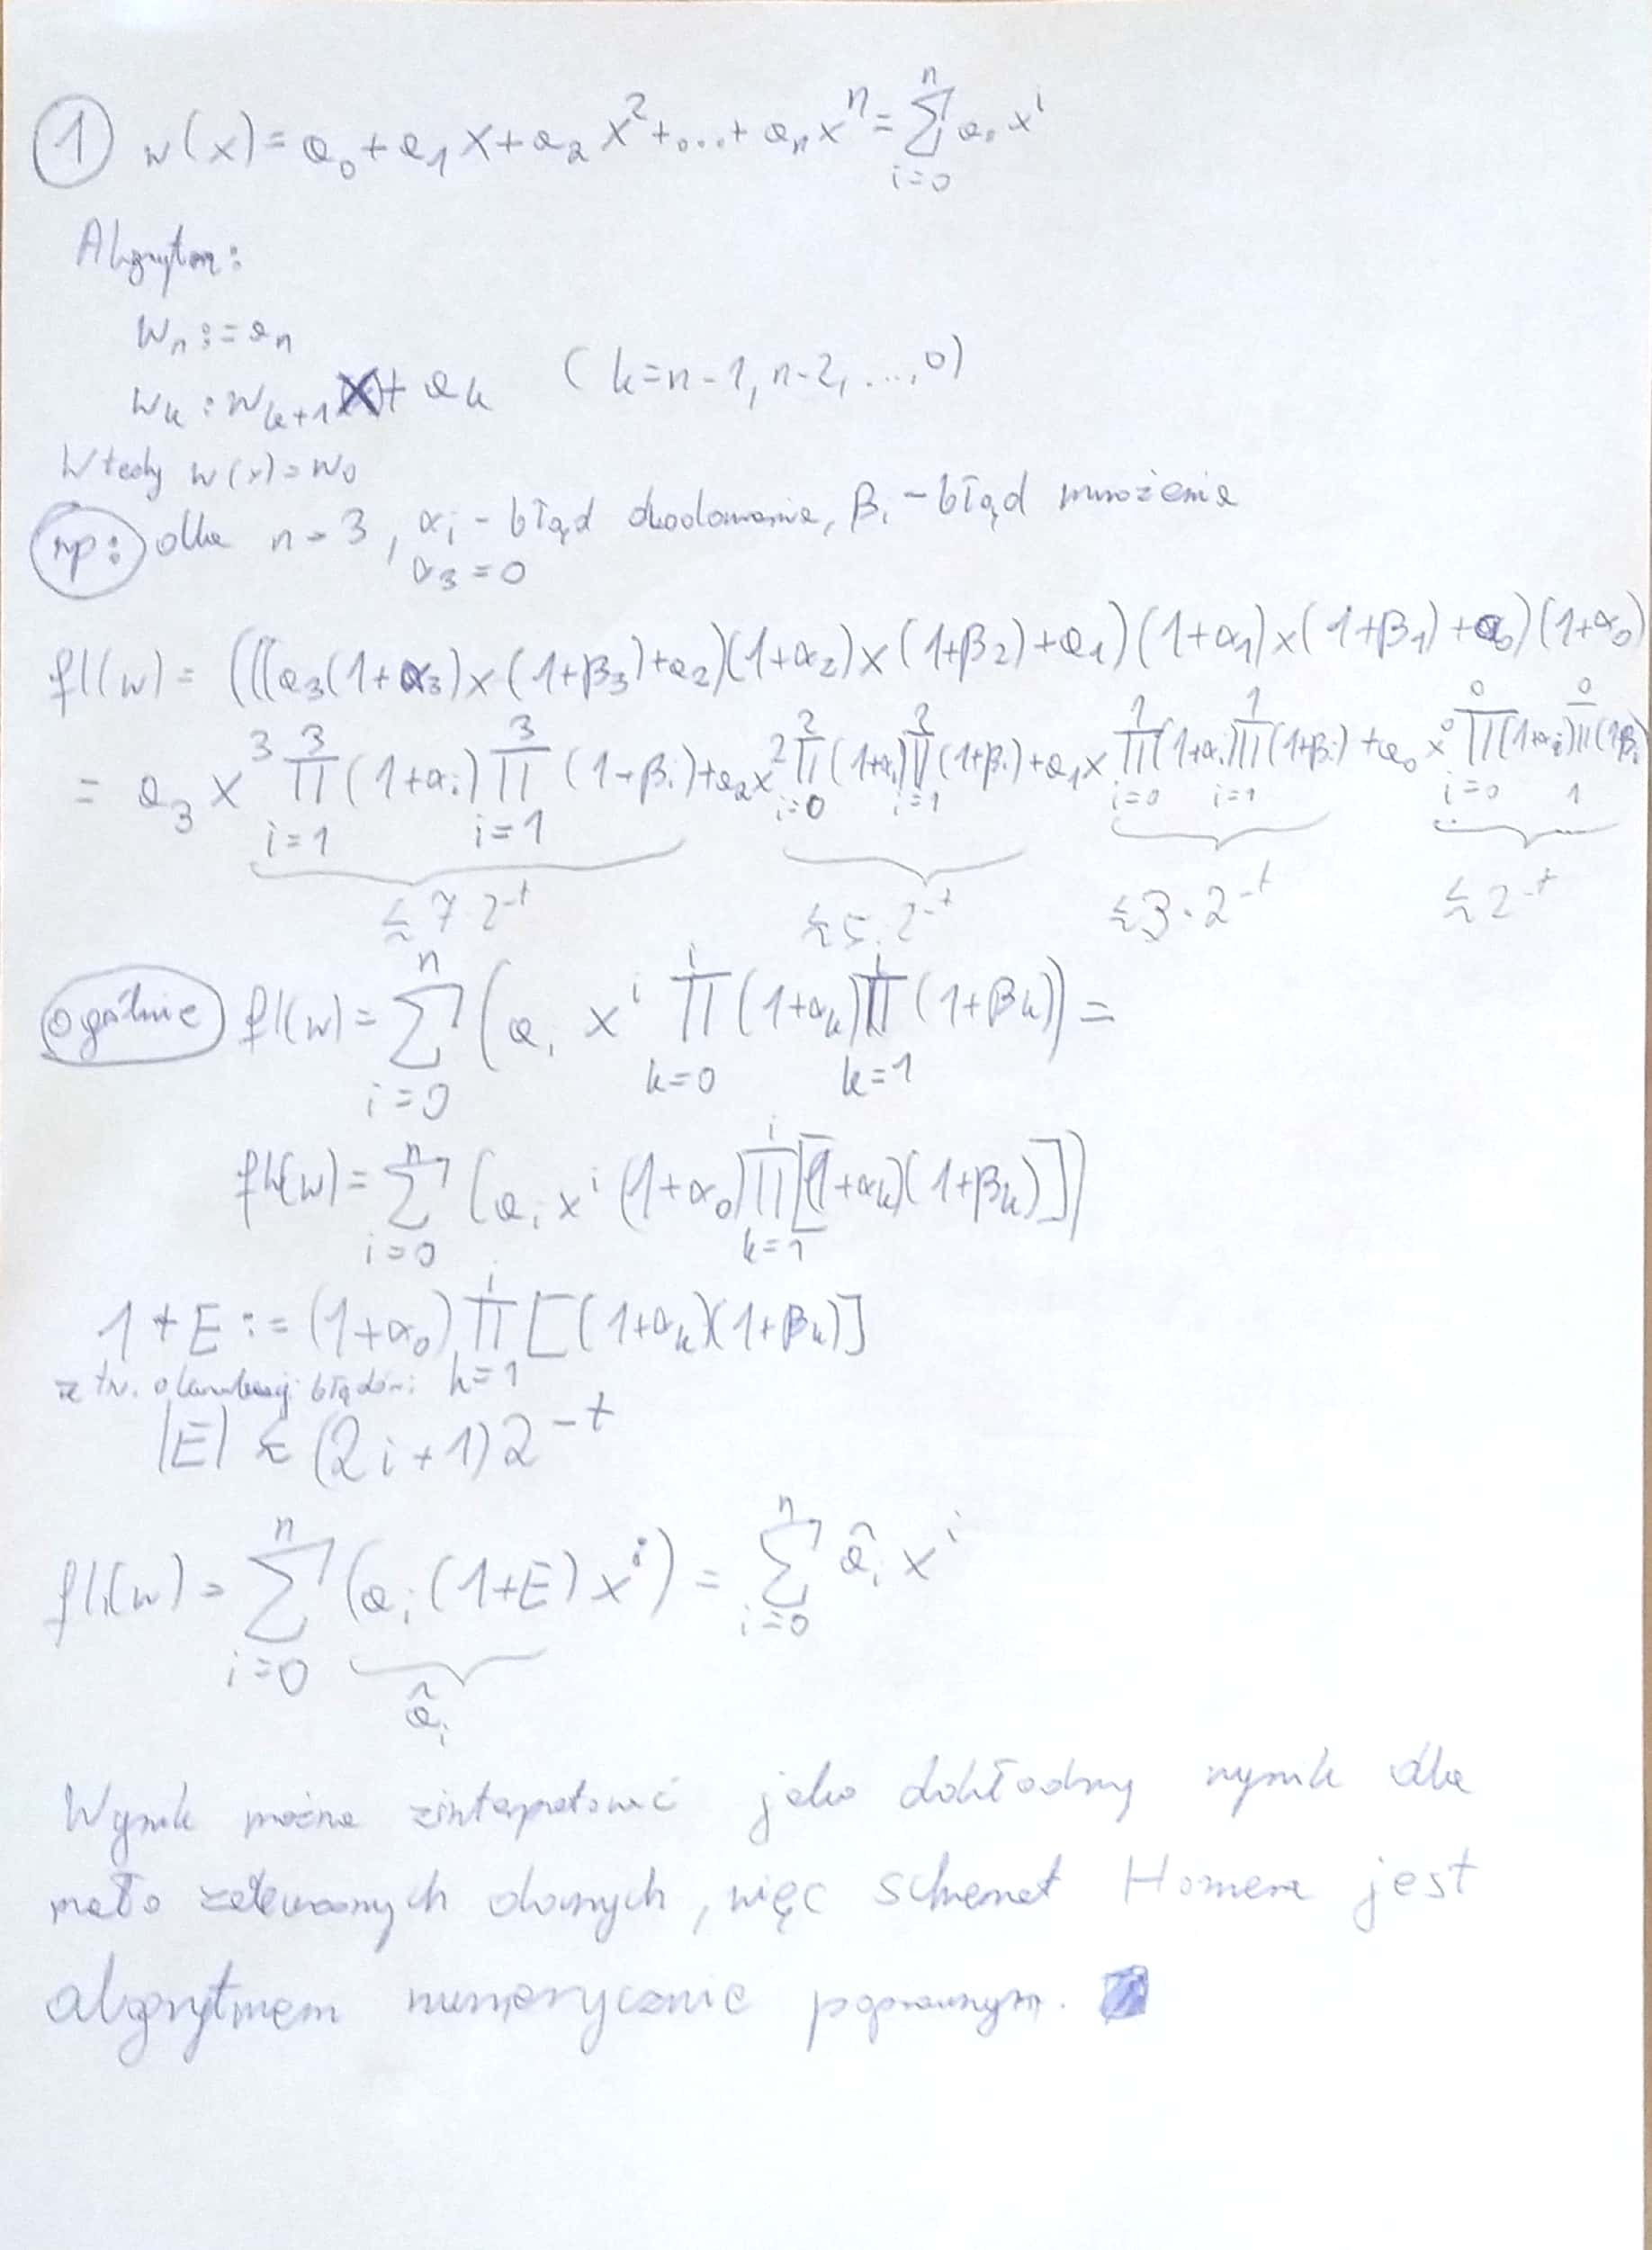 ① w(x) = a₀ + a₁x + a₂x² + ... + aₙxⁿ = ∑_{i=0}^{n} aᵢxⁱ
Algorytm:
wₙ := aₙ
wₖ := wₖ₊₁x + aₖ (k = n-1, n-2, ..., 0)
Wtedy w(x) = w₀
np: dla n = 3, αᵢ - błąd dodawania, βᵢ - błąd mnożenia
α₃ = 0
fl(w) = (((a₃(1+α₃)x(1+β₃)+a₂)(1+α₂)x(1+β₂)+a₁)(1+α₁)x(1+β₁)+a₀)(1+α₀)
= a₃x³ ∏_{i=1}^{3}(1+αᵢ) ∏_{i=1}^{3}(1+βᵢ) + a₂x² ∏_{i=0}^{2}(1+αᵢ) ∏_{i=1}^{2}(1+βᵢ) + a₁x ∏_{i=0}^{1}(1+αᵢ) ∏_{i=1}^{1}(1+βᵢ) + a₀x⁰ ∏_{i=0}^{0}(1+αᵢ) ∏_{1}^{0}(1+βᵢ)
≤ 7·2⁻ᵗ ≤ 5·2⁻ᵗ ≤ 3·2⁻ᵗ ≤ 2⁻ᵗ
ogólnie fl(w) = ∑_{i=0}^{n} (aᵢ xⁱ ∏_{k=0}^{i}(1+αₖ) ∏_{k=1}^{i}(1+βₖ)) =
fl(w) = ∑_{i=0}^{n} (aᵢxⁱ(1+α₀) ∏_{k=1}^{i}[(1+αₖ)(1+βₖ)])
1 + E := (1+α₀) ∏_{k=1}^{i}[(1+αₖ)(1+βₖ)]
z tw. o kumulacji błędów:
|E| ≤ (2i+1)2⁻ᵗ
fl(w) = ∑_{i=0}^{n} (aᵢ(1+E)xⁱ) = ∑_{i=0}^{n} âᵢxⁱ
âᵢ
Wynik można zinterpretować jako dokładny wynik dla
mało zaburzonych danych, więc schemat Hornera jest
algorytmem numerycznie poprawnym.